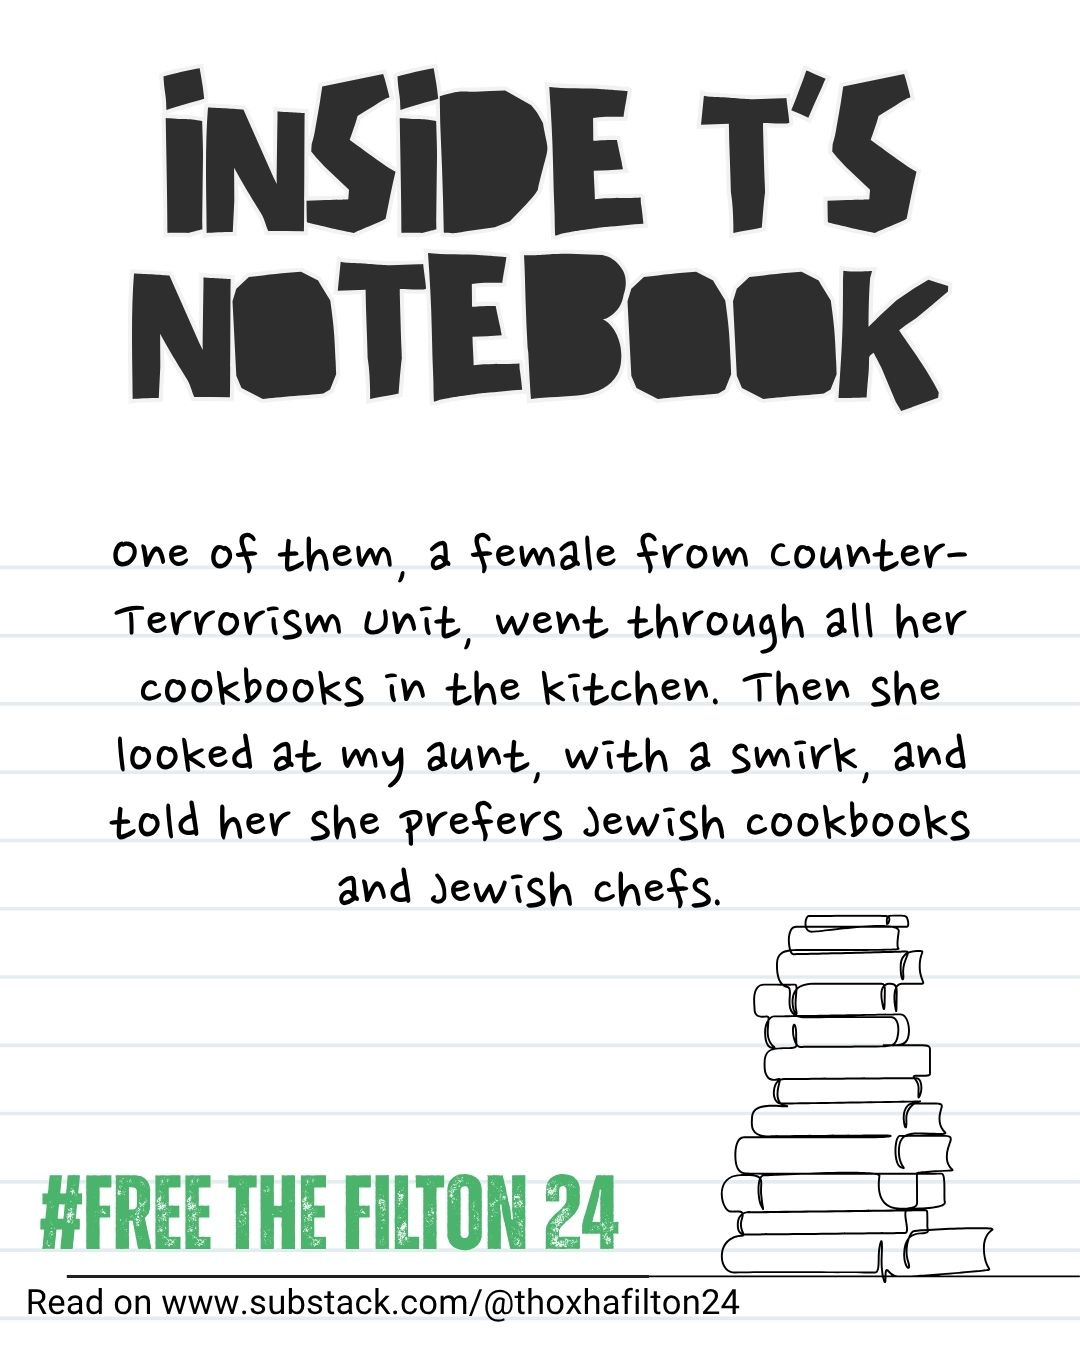 iNSiDE T'S
NOTEBOOK
One of them, a female from Counter-
Terrorism Unit, went through all her
cookbooks in the kitchen. Then she
looked at my aunt, with a smirk, and
told her she prefers Jewish cookbooks
and Jewish chefs.
#FREE THE FILTON 24
Read on www.substack.com/@thoxhafilton24